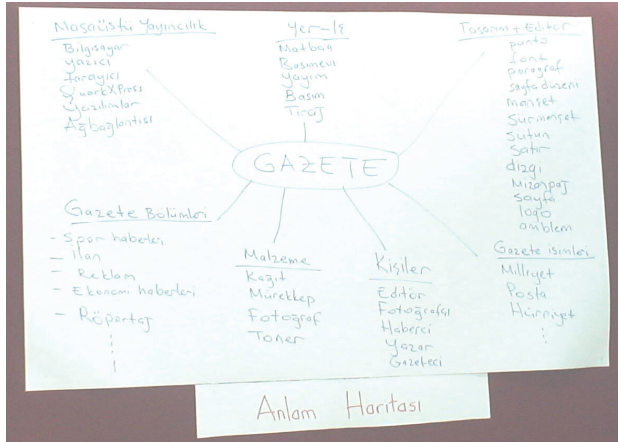 Masaüstü Yayıncılık
Bilgisayar
yazıcı
Tarayıcı
QuarkXPress
Yazılımlar
Ağbağlantısı
Yer-İş
Matbaa
Basımevi
Yayım
Basım
Tiraj
Tasarım + Editör
punto
font
paragraf
sayfa düzeni
manşet
Sürmanşet
Sütun
Satır
dizgi
Mizanpaj
Sayfa
logo
amblem
GAZETE
Gazete Bölümleri
- Spor haberleri
- İlan
- Reklam
- Ekonomi haberleri
- Röportaj
Malzeme
Kağıt
Mürekkep
Fotoğraf
Toner
Kişiler
Editör
Fotoğrafçı
Haberci
Yazar
Gazeteci
Gazete isimleri
Milliyet
Posta
Hürriyet
Anlam Haritası